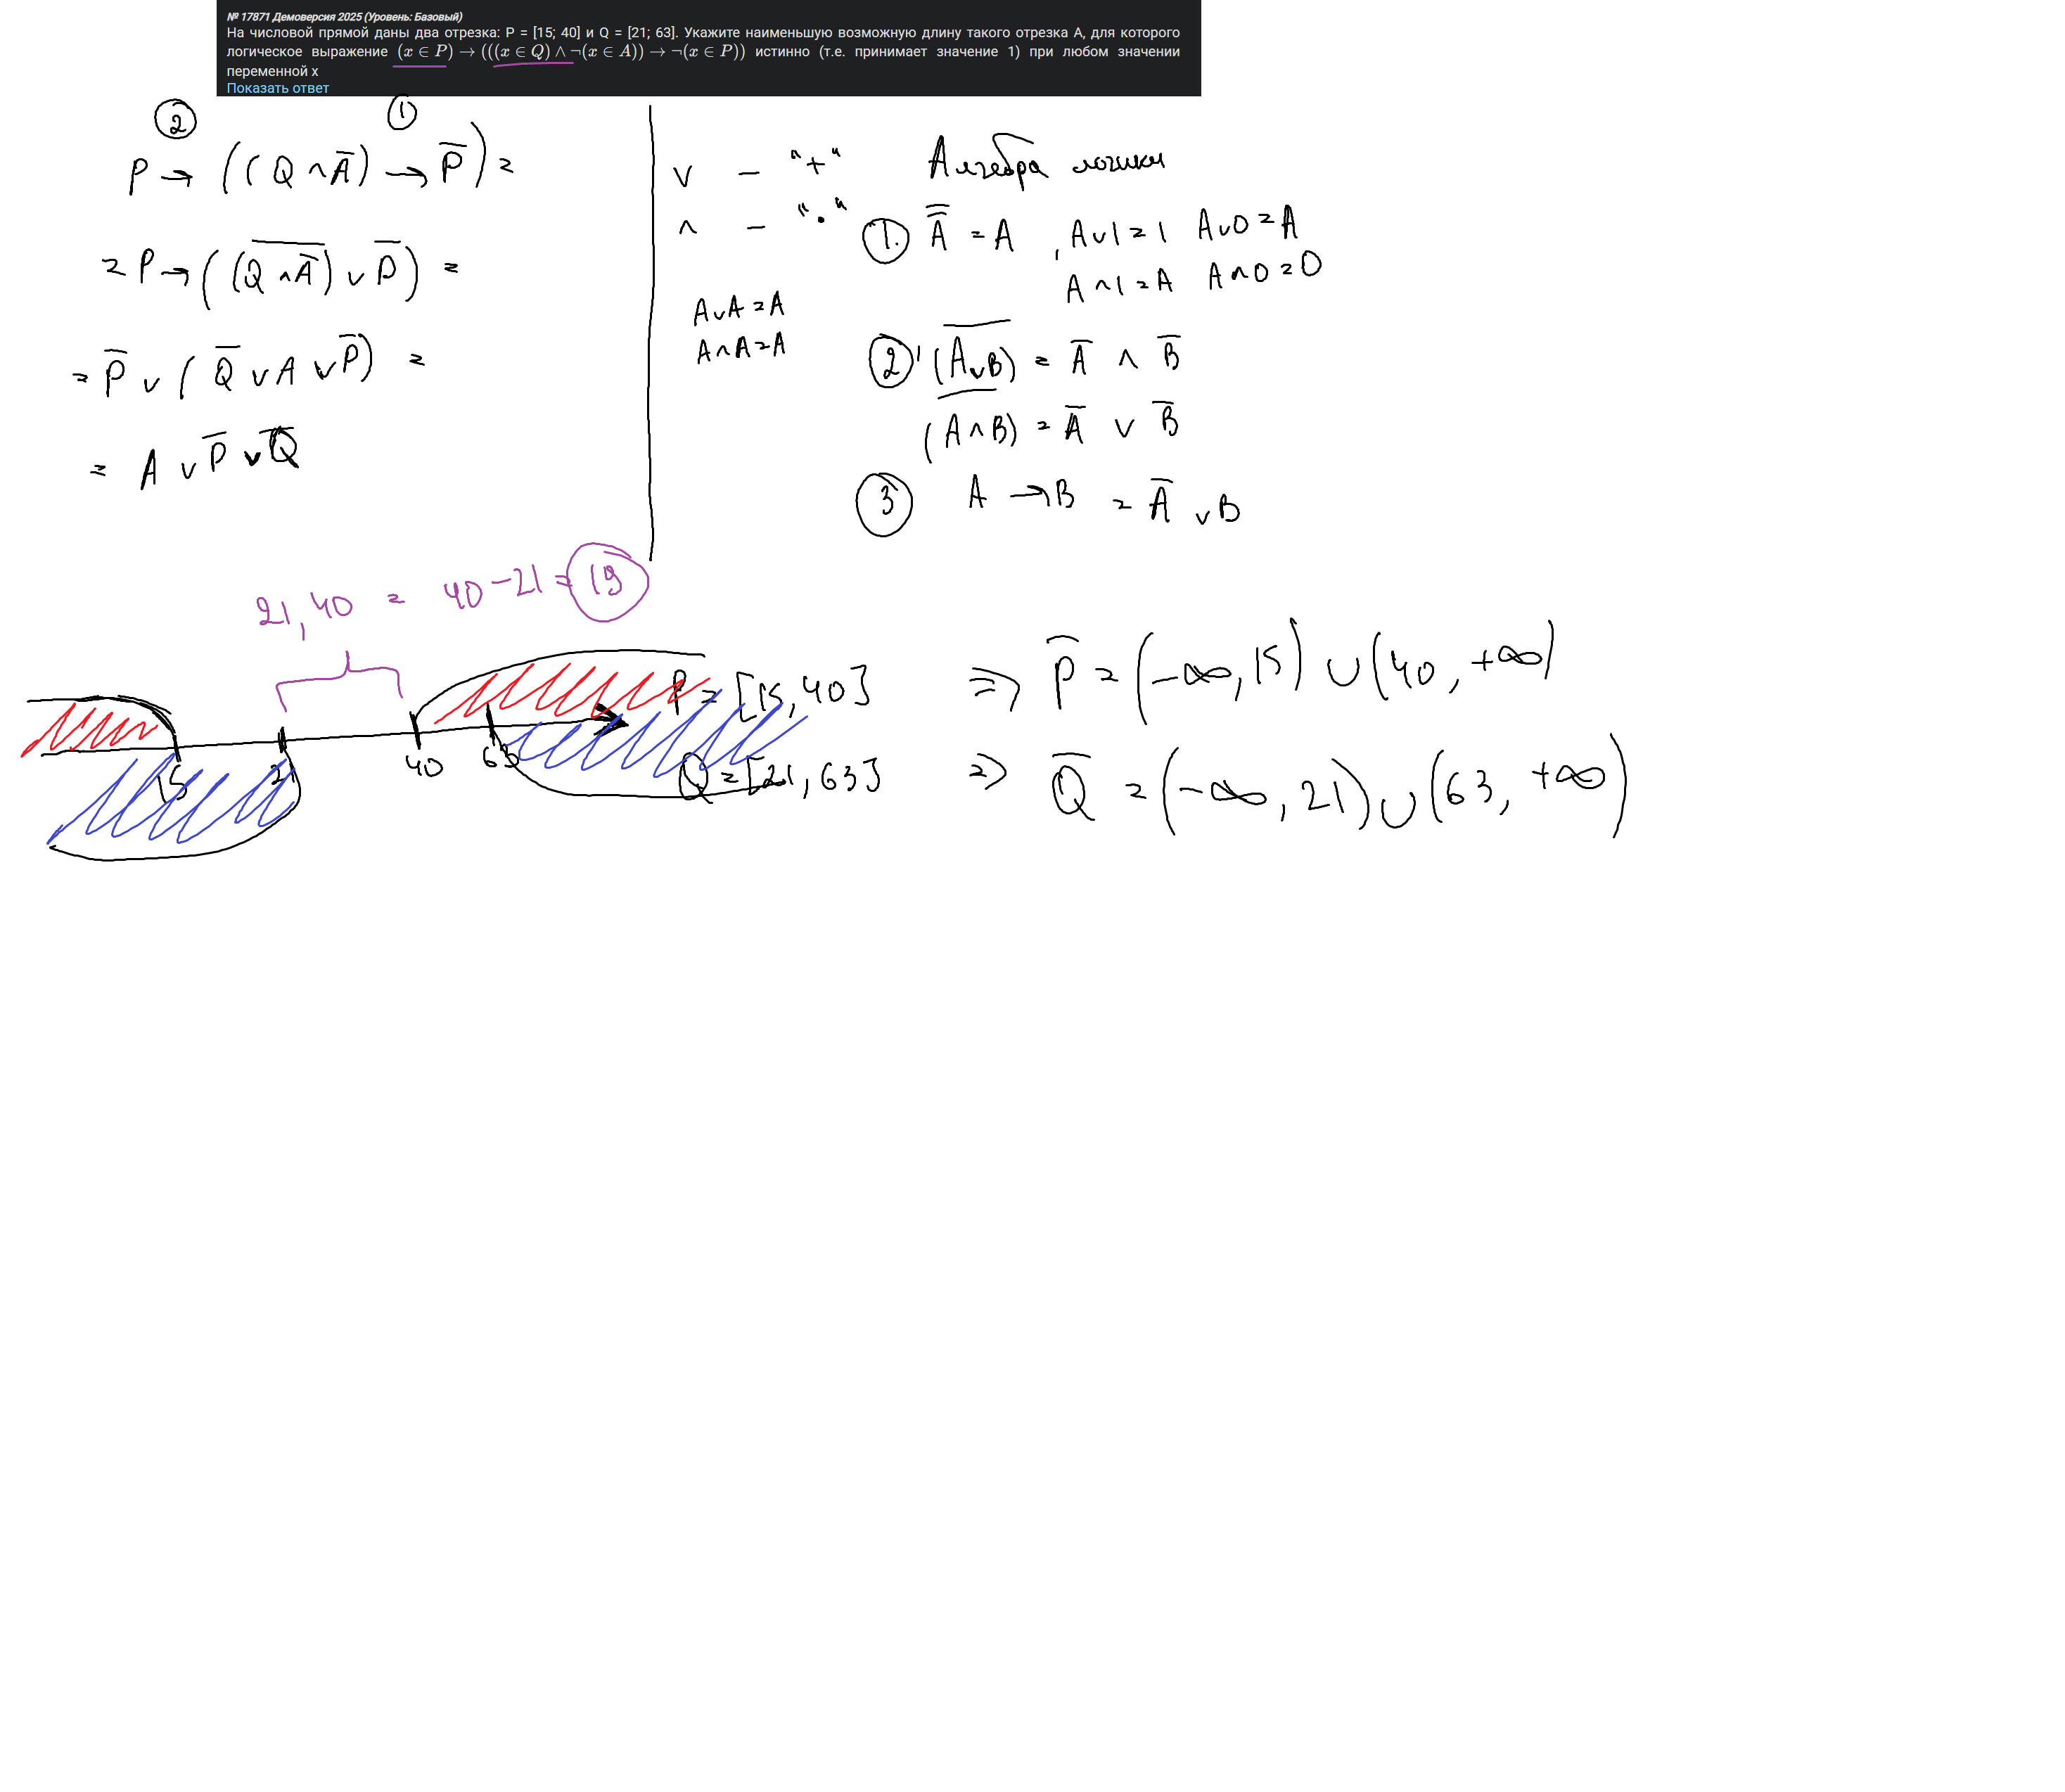 № 17871 Демоверсия 2025 (Уровень: Базовый)
На числовой прямой даны два отрезка: P = [15; 40] и Q = [21; 63]. Укажите наименьшую возможную длину такого отрезка A, для которого
логическое выражение (x ∈ P) → (((x ∈ Q) ∧ ¬(x ∈ A)) → ¬(x ∈ P)) истинно (т.е. принимает значение 1) при любом значении
переменной x
Показать ответ
② ①
P → ((Q ∧ A̅) → P̅) =
= P → ((Q ∧ A̅)̅ ∨ P̅) =
= P̅ ∨ (Q̅ ∨ A ∨ P̅) =
= A ∨ P̅ ∨ Q̅
∨ — "+"
∧ — "•"
A∨A = A
A∧A = A
Алгебра логики
①. A̿ = A , A∨1 = 1 A∨0 = A
A∧1 = A A∧0 = 0
② (A∨B)̅ = A̅ ∧ B̅
(A∧B)̅ = A̅ ∨ B̅
③ A → B = A̅ ∨ B
21, 40 = 40 - 21 = 19
15 21 40 63
P = [15, 40] ⇒ P̅ = (-∞, 15) ∪ (40, +∞)
Q = [21, 63] ⇒ Q̅ = (-∞, 21) ∪ (63, +∞)